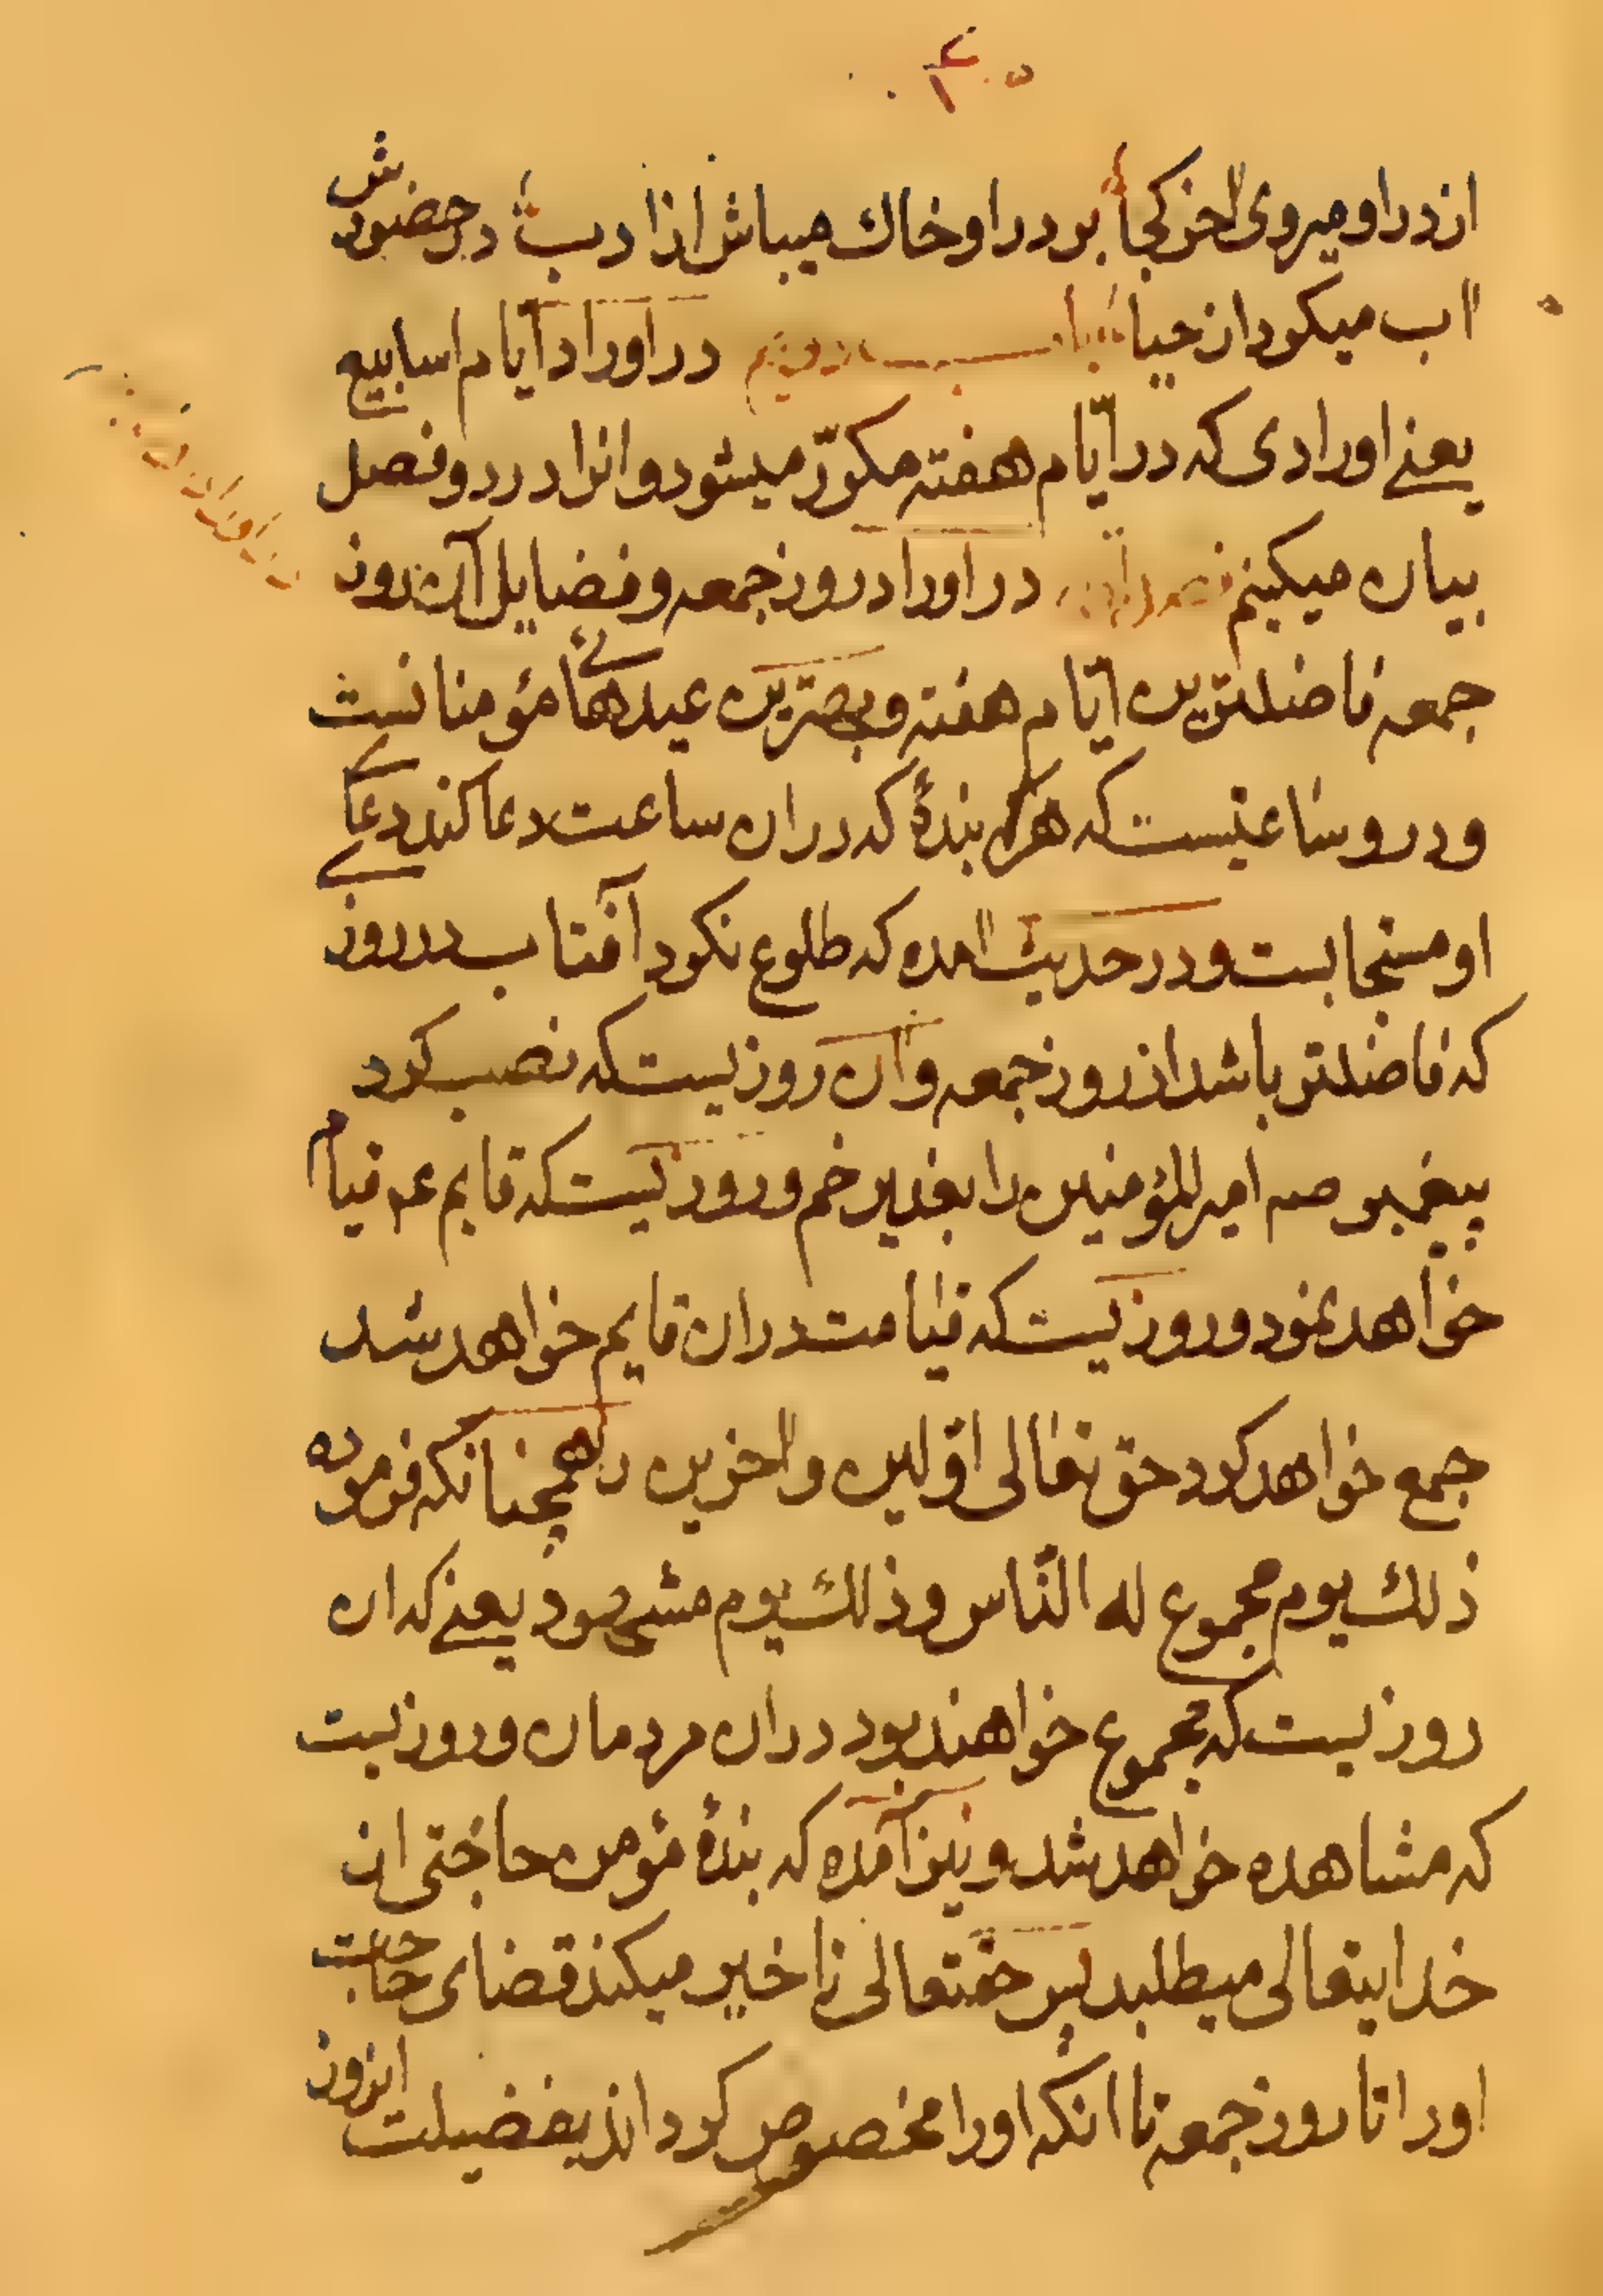 از در او میروی آخر کجا بر در او خاك میباش از ادب در حضورش
آب میگرد از حیا باب در اوراد ایام اسابیع
یعنے اورادی که در ایّام هفته مکرّر میشود و انرا در دو فصل
بیان میکینم فصل در اوراد روز جمعه و فضایل آن روز
جمعه فاضلترین ایّام هفته و بهترین عیدهاے مؤمنانست
و در و ساعتیست که هر بندهٔ که دران ساعت دعا کند دعاے
او مستجابست و در حدیث آمده که طلوع نکرد آفتاب در روزے
که فاضلتر باشد از روز جمعه و آن روزیست که نصب کرد
پیغمبر صه امیر المؤمنین را بغدیر خم و روزیست که قایم عه قیام
خواهد نمود و روزیست که قیامت دران قایم خواهد شد
جمع خواهد کرد حق تعالی اوّلین و آخرین را همچنانکه فرموده
ذلك یوم مجموع له النّاس و ذلك یوم مشهود یعنے که ان
روزیست که مجموع خواهند بود دران مردمان و روزیست
که مشاهده خواهد شد و نیز آمده که بندهٔ مؤمن حاجتی از
خدایتعالی میطلبد پس حقتعالی تاخیر میکند قضای حاجت
او را تا روز جمعه تا انکه اورا مخصوص کرداند بفضیلت اینروز